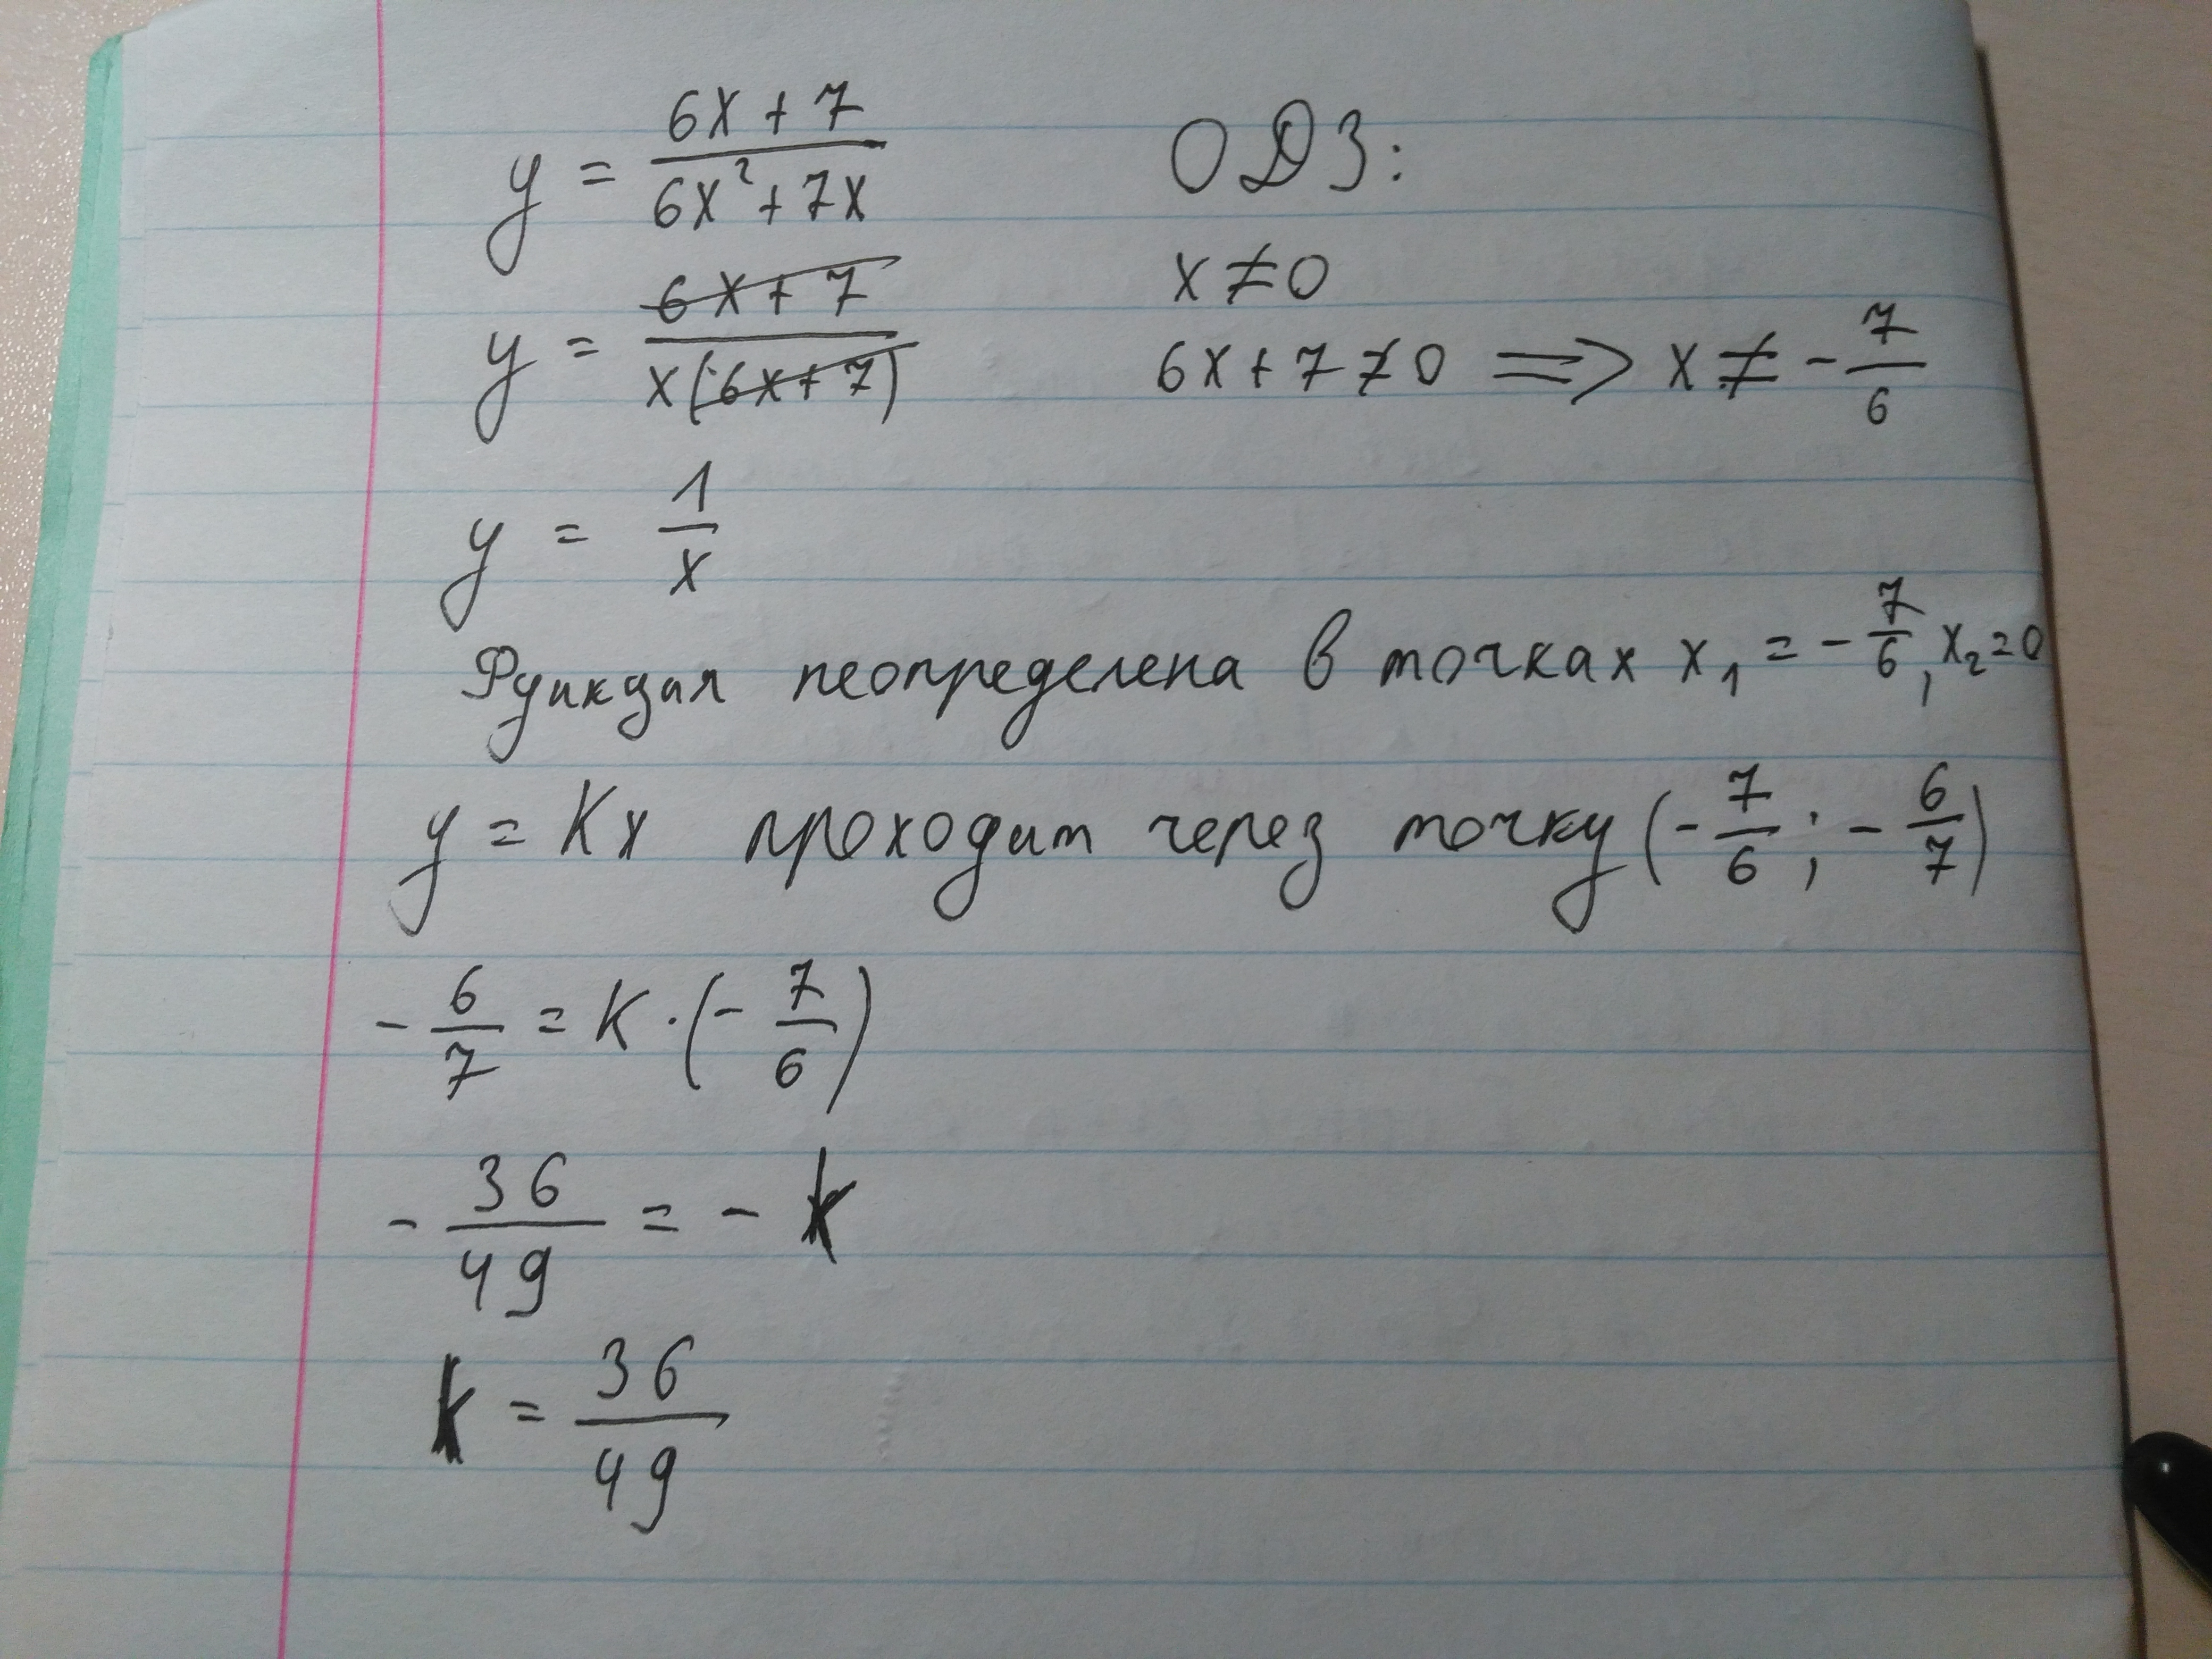 y = (6x + 7)/(6x² + 7x) ОДЗ:
y = (6x + 7)/(x(6x + 7)) x ≠ 0
6x + 7 ≠ 0 ⟹ x ≠ -7/6
y = 1/x
Функция неопределена в точках x₁ = -7/6, x₂ = 0
y = Kx проходит через точку (-7/6; -6/7)
-6/7 = K · (-7/6)
-36/49 = -k
k = 36/49